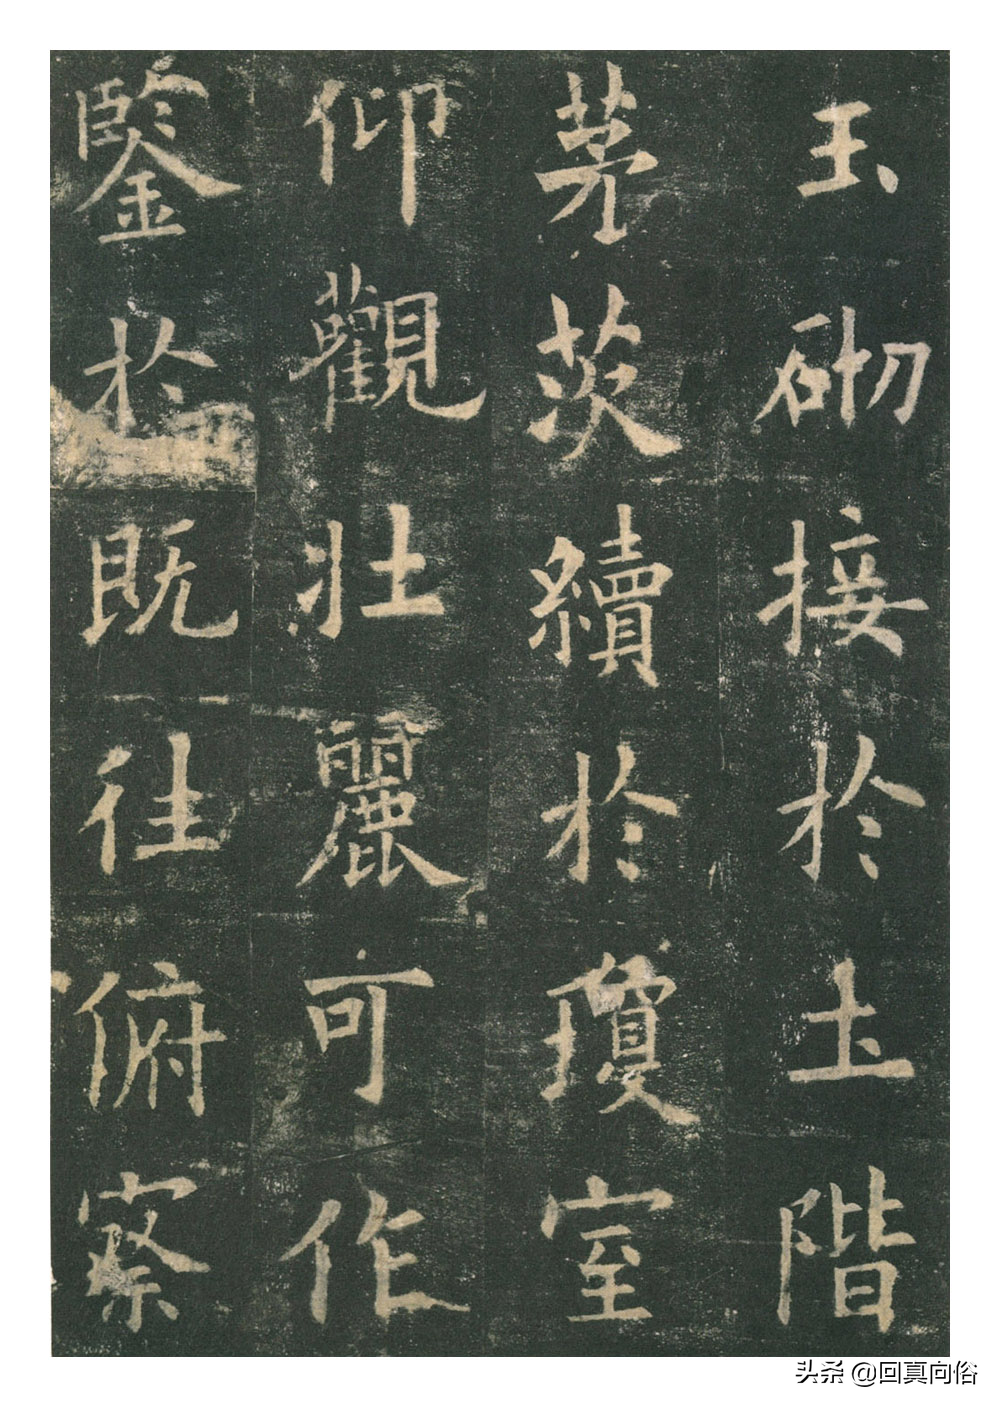 玉砌接於土階
茅茨續於瓊室
仰觀壯麗可作
鑒於既往俯察
头条 @回真向俗